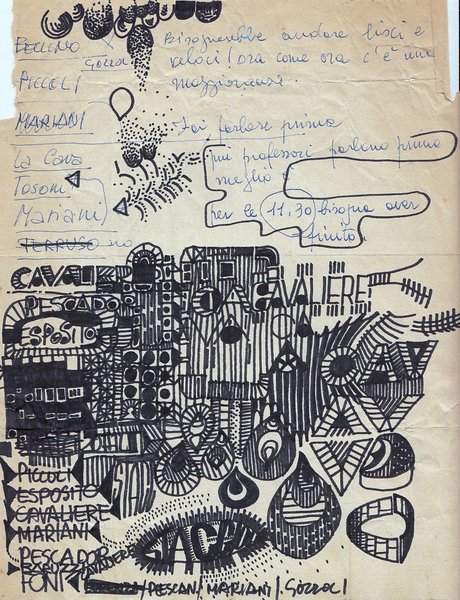 BELLINO X
GOZZOLI
PICCOLI
MARIANI
La Cava
Tosoni
Mariani
TERRUSO no
Bisognerebbe andare lisci e
veloci! ora come ora c'è una
maggioranza.
Fai parlare prima
più professori parlano prima
meglio è
per le 11.30 bisogna aver
finito.
CAVALIERE
CAVALIERE!
PESCADOR
ESPOSITO
CAV
PICCOLI
ESPOSITO
CAVALIERE
MARIANI
PESCADOR
FONI
JACOP
/PESCAN/MARIANI/.GOZZOLI